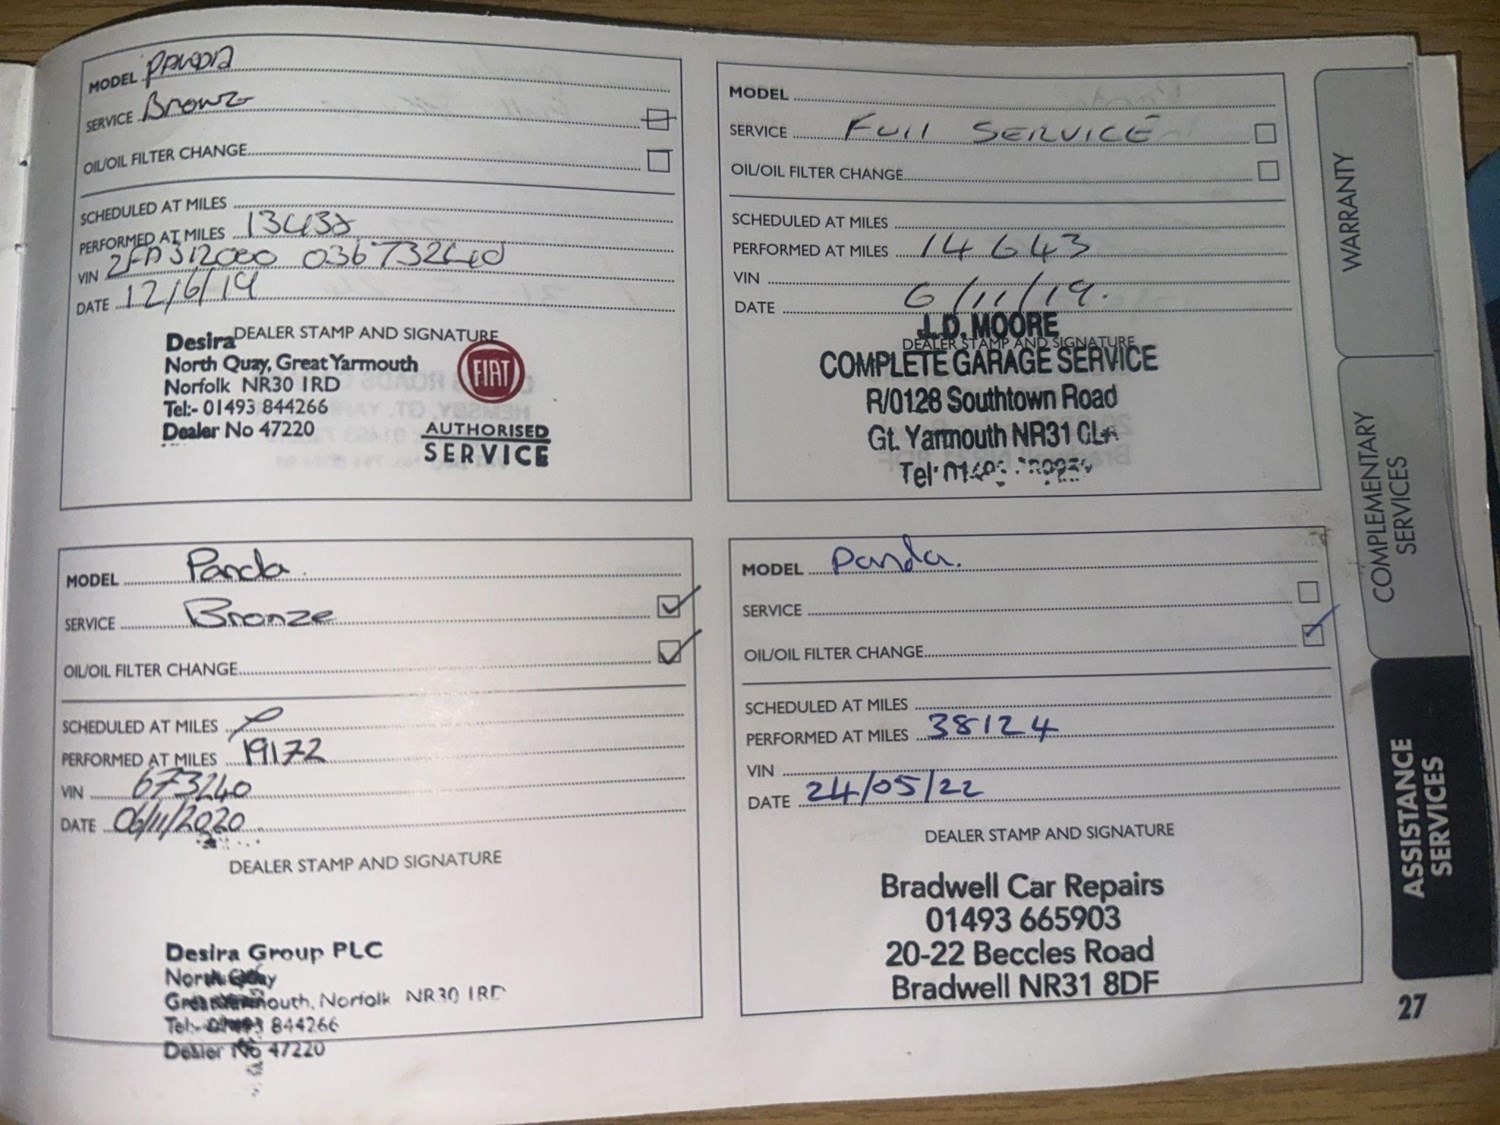 MODEL PANDA
SERVICE Bronze
OIL/OIL FILTER CHANGE
SCHEDULED AT MILES
PERFORMED AT MILES
VIN
DATE 12/6/19
DEALER STAMP AND SIGNATURE
Desira
North Quay, Great Yarmouth
Norfolk NR30 1RD
Tel:- 01493 844266
Dealer No 47220
FIAT
AUTHORISED
SERVICE
MODEL
SERVICE FULL SERVICE
OIL/OIL FILTER CHANGE
SCHEDULED AT MILES
PERFORMED AT MILES 14643
VIN
DATE 6/11/19.
DEALER STAMP AND SIGNATURE
J.D. MOORE
COMPLETE GARAGE SERVICE
R/0128 Southtown Road
Gt. Yarmouth NR31
Tel:
MODEL Panda
SERVICE Bronze
OIL/OIL FILTER CHANGE
SCHEDULED AT MILES
PERFORMED AT MILES 19172
VIN 673240
DATE 06/11/2020
DEALER STAMP AND SIGNATURE
Desira Group PLC
North Quay
Great Yarmouth, Norfolk NR30 1RD
Tel:- 01493 844266
Dealer No 47220
MODEL Panda.
SERVICE
OIL/OIL FILTER CHANGE
SCHEDULED AT MILES
PERFORMED AT MILES 38124
VIN
DATE 24/05/22
DEALER STAMP AND SIGNATURE
Bradwell Car Repairs
01493 665903
20-22 Beccles Road
Bradwell NR31 8DF
WARRANTY
COMPLEMENTARY
SERVICES
ASSISTANCE
SERVICES
27